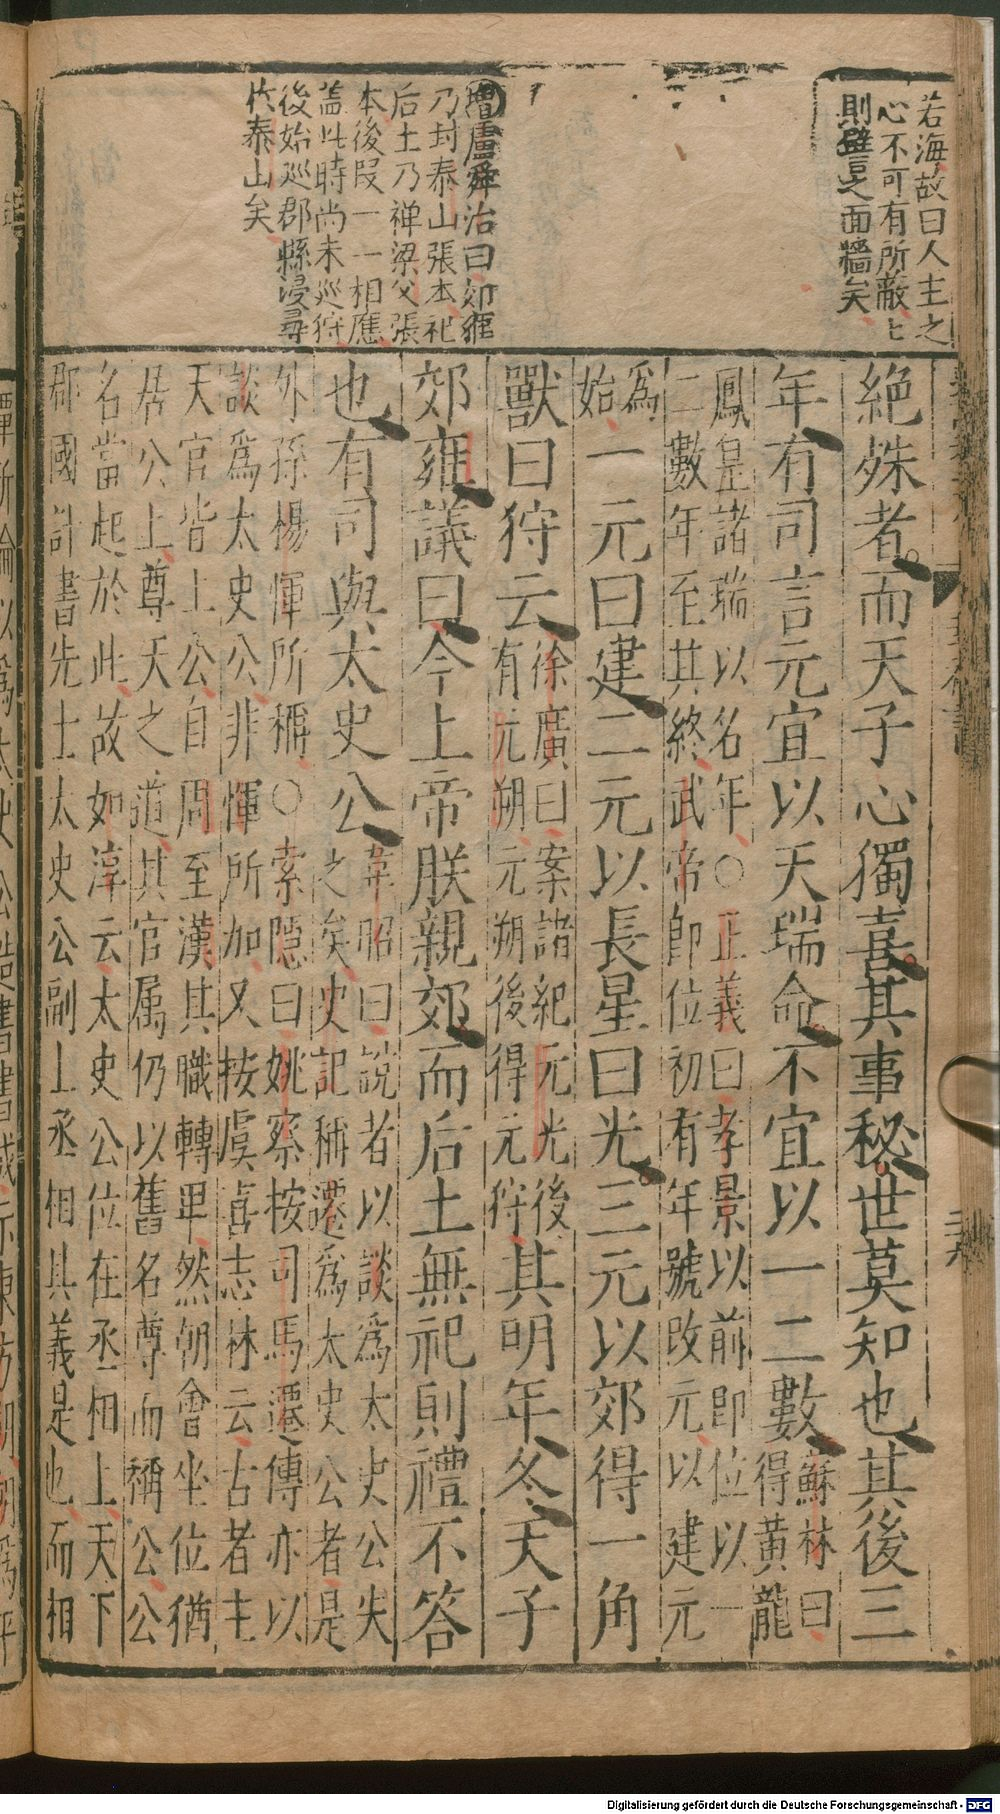 若海故曰人主之
心不可有所敝七
則譬之面牆矣
增盧舜治曰郊雍
乃封泰山張本祀
后土乃禪梁父張
本後叚一一相應
盖此時尚未巡狩
後始巡郡縣浸尋
於泰山矣
絕殊者而天子心獨喜其事秘世莫知也其後三
年有司言元宜以天瑞命不宜以一二數蘇林曰
得黃龍
鳳皇諸瑞以名年○正義曰孝景以前即位以一
二數年至其終武帝即位初有年號改元以建元
為
始一元曰建二元以長星曰光三元以郊得一角
獸曰狩云徐廣曰案諸紀元光後
有元朔元朔後得元狩其明年冬天子
郊雍議曰今上帝朕親郊而后土無祀則禮不答
也有司與太史公韋昭曰說者以談為太史公失
之矣史記稱遷為太史公者是
外孫楊惲所稱○索隱曰姚察按司馬遷傳亦以
談為太史公非惲所加又按虞喜志林云古者主
天官皆上公自周至漢其職轉卑然朝會坐位猶
居公上尊天之道其官属仍以舊名尊而稱公公
名當起於此故如淳云太史公位在丞相上天下
郡國計書先上太史公副上丞相其義是也而相
二六
Digitalisierung gefördert durch die Deutsche Forschungsgemeinschaft - DFG